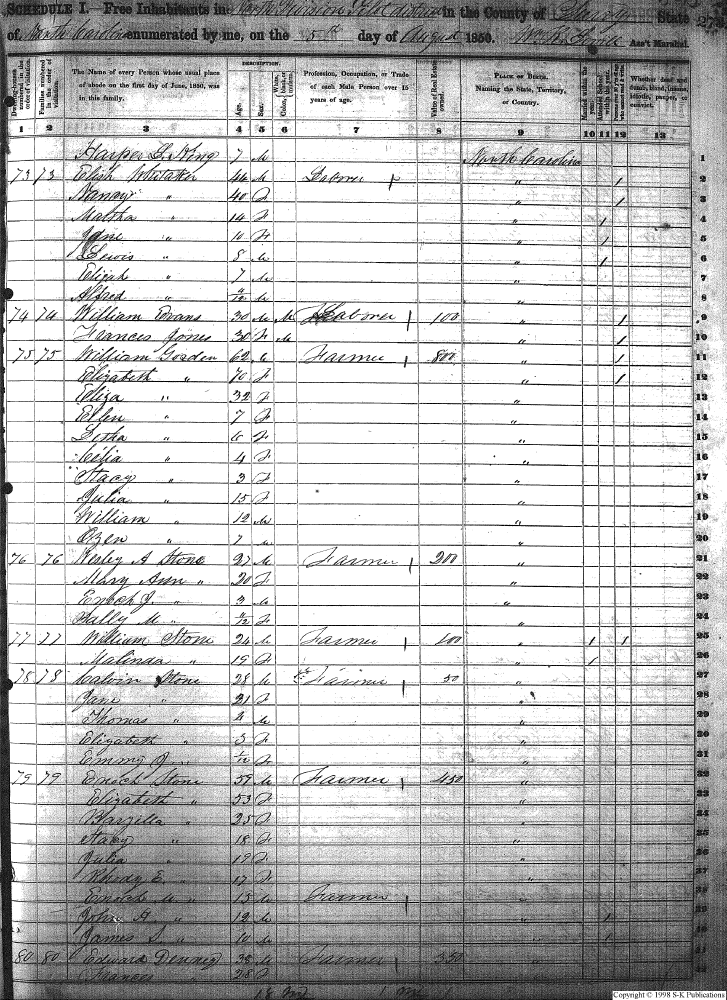 SCHEDULE I.—Free Inhabitants in North Division in the County of State 273
of North Carolina enumerated by me, on the 5th day of August 1850. Ass't Marshal.
Dwelling-houses numbered in the order of visitation.
Families numbered in the order of visitation.
The Name of every Person whose usual place of abode on the first day of June, 1850, was in this family.
DESCRIPTION.
Age.
Sex.
White, black, or mulatto.
Color,
Profession, Occupation, or Trade of each Male Person over 15 years of age.
Value of Real Estate owned.
PLACE OF BIRTH. Naming the State, Territory, or Country.
Married within the year.
Whether deaf and dumb, blind, insane, idiotic, pauper, or convict.
1 2 3 4 5 6 7 8 9 10 11 12 13
Harper G. King 7 M North Carolina 1
73 73 Elish Whitaker 44 M Laborer " / 2
Nancy " 40 F " / 3
Martha " 14 F " / 4
Jane " 10 F " / 5
Lewis " 8 M " / 6
Elijah " 7 M " 7
Alfred " /12 M " 8
74 74 William Evans 30 M M Laborer 100 " / 9
Frances Jones 30 F M " / 10
75 75 William Gorden 62 M Farmer 800 " / 11
Elizabeth " 70 F " / 12
Eliza " 32 F " 13
Ellen " 7 F " 14
Letha " 6 F " 15
Celia " 4 F " 16
Stacy " 3 F " 17
Julia " 15 F " 18
William " 12 M " 19
Ozen " 7 M " 20
76 76 Wesley A Stone 27 M Farmer 200 " 21
Mary Ann " 20 F " 22
Enoch J. " 3 M " 23
Sally M " /12 F " 24
77 77 William Stone 24 M Farmer 100 " / / 25
Malinda " 19 F " / 26
78 78 Calvin Stone 28 M Farmer 50 " 27
Jane " 21 F " 28
Thomas " 4 M " 29
Elizabeth " 3 F " 30
Emma J. " /12 F " 31
79 79 Enoch Stone 59 M Farmer 450 " 32
Elizabeth " 53 F " 33
Barzilla " 25 F " 34
Stacy " 18 F " 35
Julia " 19 F " 36
Rhody E. " 17 F " 37
Enoch " 15 M Farmer " 38
John H. " 12 M " / 39
James S. " 10 M " / 40
80 80 Edward Denney 38 M Farmer 350 " 41
Frances " 28 F " 42
Copyright © 1998 S-K Publications